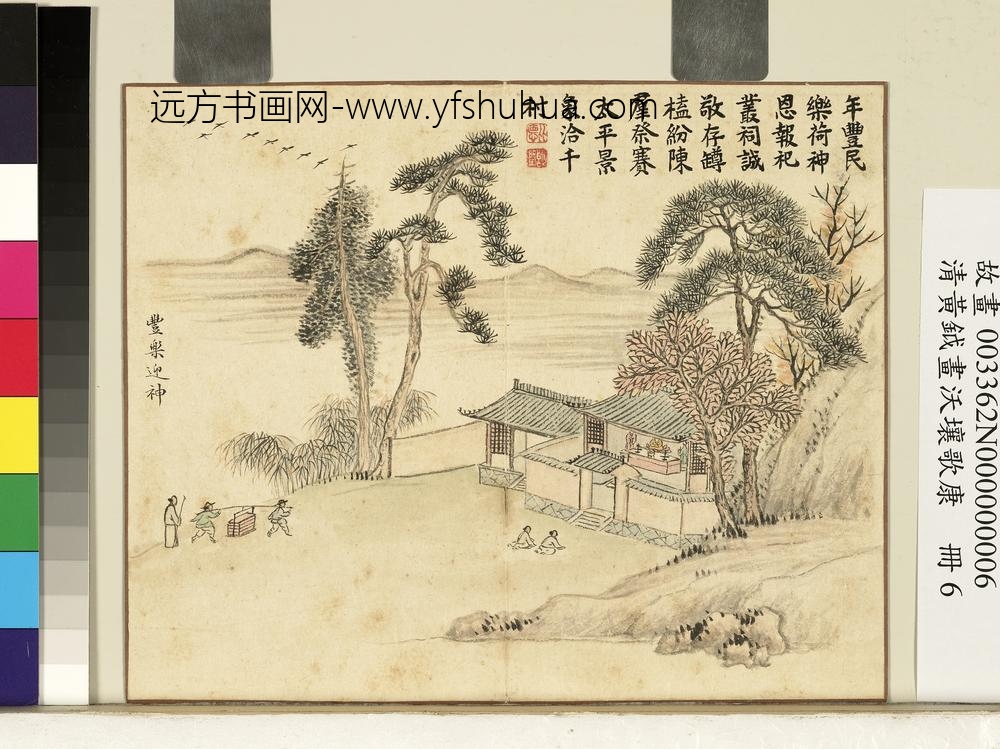 远方书画网-www.yfshuhua.com
年豐民
樂荷神
恩報祀
叢祠誠
敬存罇
榼紛陳
羣祭賽
太平景
象洽千
村
豐樂迎神
故畫 003362N000000006
清黃鉞畫沃壤歌康 冊 6